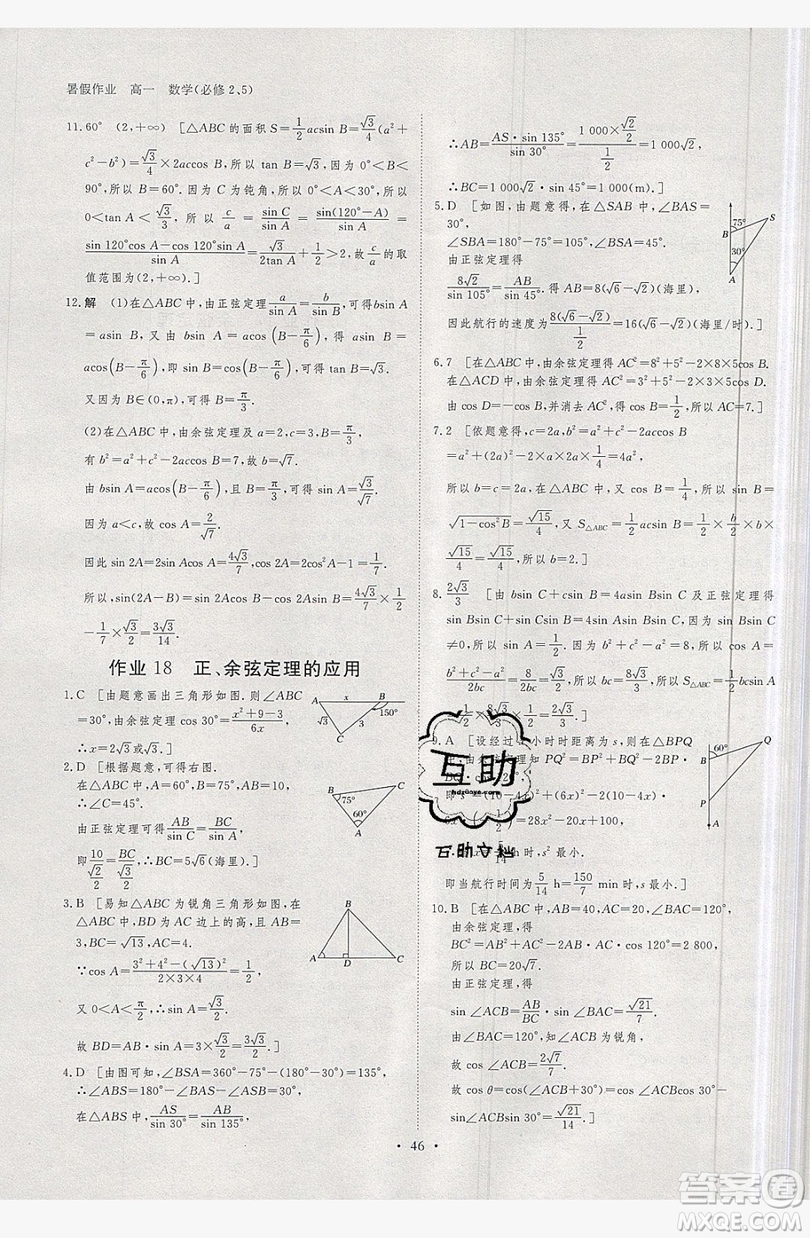 暑假作业 高一 数学(必修2、5)
11.60° (2,+∞) [△ABC的面积S=1/2 acsin B=√3/4(a²+
c²-b²)=√3/4×2accos B,所以 tan B=√3,因为0°<B<
90°,所以B=60°.因为C为钝角,所以0°<A<30°,所以
0<tan A<√3/3,所以 c/a=sin C/sin A=sin(120°-A)/sin A=
(sin 120°cos A-cos 120°sin A)/sin A=√3/(2tan A)+1/2>2,故 c/a 的取
值范围为(2,+∞).]
12.解 (1)在△ABC中,由正弦定理 a/sin A=b/sin B,可得bsin A
=asin B,又由bsin A=acos(B-π/6),得asin B=
acos(B-π/6),即 sin B=cos(B-π/6),可得 tan B=√3.
又因为B∈(0,π),可得B=π/3.
(2)在△ABC中,由余弦定理及a=2,c=3,B=π/3,
有b²=a²+c²-2accos B=7,故b=√7.
由bsin A=acos(B-π/6),且B=π/3,可得 sin A=√3/√7.
因为a<c,故 cos A=2/√7.
因此 sin 2A=2sin Acos A=4√3/7,cos 2A=2cos²A-1=1/7.
所以,sin(2A-B)=sin 2Acos B-cos 2Asin B=4√3/7×1/2
-1/7×√3/2=3√3/14.
作业18 正、余弦定理的应用
1.C [由题意画出三角形如图.则∠ABC
=30°,由余弦定理 cos 30°=(x²+9-3)/6x,
∴x=√3或2√3.]
A x B 150° √3 3 C
2.D [根据题意,可得右图.
在△ABC中,A=60°,B=75°,AB=10,
∴C=45°.
由正弦定理可得 AB/sin C=BC/sin A,
即 10/(√2/2)=BC/(√3/2),∴BC=5√6(海里).]
B C 75° 60° A
3.B [易知△ABC为锐角三角形,如图,在
△ABC中,BD为AC边上的高,AB=
3,BC=√13,AC=4.
∵cos A=(3²+4²-(√13)²)/(2×3×4)=1/2,
又0<A<π/2,∴sin A=√3/2.
故BD=AB·sin A=3×√3/2=3√3/2.]
B A D C
4.D [由图可知,∠BSA=360°-75°-(180°-30°)=135°,
∴∠ABS=180°-∠BAS-∠BSA=30°,
在△ABS中,AS/sin 30°=AB/sin 135°,
∴AB=AS·sin 135°/sin 30°=(1 000×√2/2)/(1/2)=1 000√2,
∴BC=AB·sin 45°=1 000(m).]
5.D [如图,由题意得,在△SAB中,∠BAS=
30°,
∠SBA=180°-75°=105°,∠BSA=45°.
由正弦定理得
8√2/sin 105°=AB/sin 45°,得AB=8(√6-√2)(海里),
因此航行的速度为 8(√6-√2)/(1/2)=16(√6-√2)(海里/时).]
S 75° B 30° A
6.7 [在△ABC中,由余弦定理得AC²=8²+5²-2×8×5cos B.
在△ACD中,由余弦定理得AC²=3²+5²-2×3×5cos D.
由 cos D=-cos B,并消去AC²,得AC=7.]
7.2 [依题意得,c=2a,b²=a²+c²-2accos B
=a²+(2a)²-2×a×2a×1/4=4a²,
所以b=c=2a,在△ABC中,因为B∈(0,π),所以 sin B=
√(1-cos²B)=√15/4,又S△ABC=1/2 acsin B=1/2×b/2×b×
√15/4=√15/4,所以b=2.]
8.2√3/3 [由bsin C+csin B=4asin Bsin C及正弦定理得
sin Bsin C+sin Csin B=4sin Asin Bsin C,又 sin Bsin C
≠0,所以 sin A=1/2.由余弦定理得 cos A=(b²+c²-a²)/2bc
=8/2bc=4/bc>0,所以 cos A=√3/2,bc=4/cos A=8√3/3,所以S△ABC=
1/2 bcsin A=1/2×8√3/3×1/2=2√3/3.]
9.A [设经过 小时时距离为s,则在△BPQ
由余弦定理知PQ²=BP²+
BQ²-
即s²=(10-4x)²+(6x)²-2(10-4x)×
=28x²-20x+100,
当 5/14 h时,s²最小.
即当航行时间为 5/14 h=150/7 min时,s²最小.]
B 60° Q P A
10.B [在△ABC中,AB=40,AC=20,∠BAC=120°,
由余弦定理得
BC²=AB²+AC²-2AB·AC·cos 120°=2 800,
所以BC=20√7.
由正弦定理得
sin∠ACB=AB/BC·sin∠BAC=√21/7.
由∠BAC=120°,知∠ACB为锐角,
故 cos∠ACB=2√7/7.
故 cos θ=cos(∠ACB+30°)=cos∠ACBcos 30°-
sin∠ACBsin 30°=√21/14.]
互助
hdzuoye.com
互助文档
• 46 •
答案圈
MXQE.COM